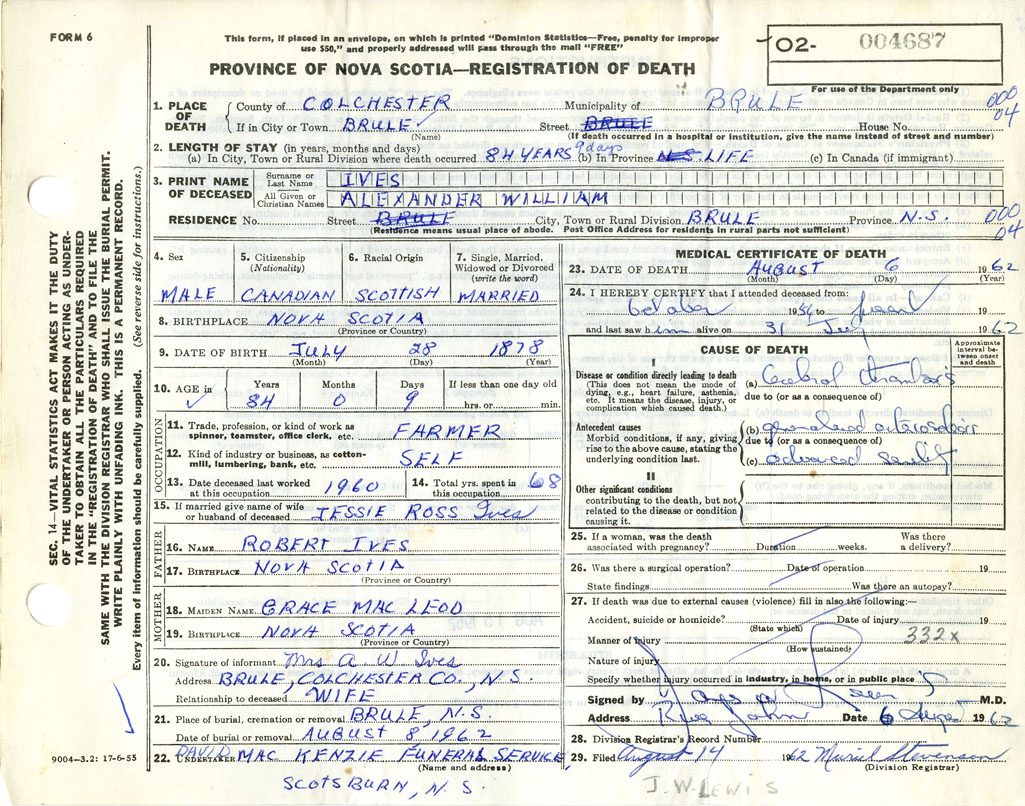 FORM 6
This form, if placed in an envelope, on which is printed "Dominion Statistics—Free, penalty for improper
use $50," and properly addressed will pass through the mail "FREE"
02- 004687
PROVINCE OF NOVA SCOTIA—REGISTRATION OF DEATH
For use of the Department only
1. PLACE OF DEATH
County of COLCHESTER Municipality of BRULE 000 04
If in City or Town BRULE (Name) Street BRULE House No.
(If death occurred in a hospital or institution, give the name instead of street and number)
2. LENGTH OF STAY (in years, months and days)
(a) In City, Town or Rural Division where death occurred 84 YEARS 9 days (b) In Province N.S. LIFE (c) In Canada (if immigrant)
3. PRINT NAME OF DECEASED
Surname or Last Name IVES
All Given or Christian Names ALEXANDER WILLIAM
RESIDENCE No. Street BRULE City, Town or Rural Division BRULE Province N.S. 000 04
(Residence means usual place of abode. Post Office Address for residents in rural parts not sufficient)
4. Sex MALE
5. Citizenship (Nationality) CANADIAN
6. Racial Origin SCOTTISH
7. Single, Married, Widowed or Divorced (write the word) MARRIED
8. BIRTHPLACE NOVA SCOTIA
(Province or Country)
9. DATE OF BIRTH JULY 28 1878
(Month) (Day) (Year)
10. AGE in Years Months Days If less than one day old
84 0 9 hrs. or min.
OCCUPATION
11. Trade, profession, or kind of work as spinner, teamster, office clerk, etc. FARMER
12. Kind of industry or business, as cotton-mill, lumbering, bank, etc. SELF
13. Date deceased last worked at this occupation 1960
14. Total yrs. spent in this occupation 68
15. If married give name of wife or husband of deceased JESSIE ROSS Ives
FATHER
16. NAME ROBERT IVES
17. BIRTHPLACE NOVA SCOTIA
(Province or Country)
MOTHER
18. MAIDEN NAME GRACE MAC LEOD
19. BIRTHPLACE NOVA SCOTIA
(Province or Country)
20. Signature of informant Mrs A. W Ives
Address BRULE, COLCHESTER CO., N.S.
Relationship to deceased WIFE
21. Place of burial, cremation or removal BRULE, N.S.
Date of burial or removal AUGUST 8, 1962
22. UNDERTAKER DAVID MAC KENZIE FUNERAL SERVICE,
(Name and address)
SCOTSBURN, N.S.
MEDICAL CERTIFICATE OF DEATH
23. DATE OF DEATH AUGUST 6 1962
(Month) (Day) (Year)
24. I HEREBY CERTIFY that I attended deceased from:
October 1956 to present
and last saw him alive on 31 July 1962
CAUSE OF DEATH
Approximate interval between onset and death
I
Disease or condition directly leading to death
(This does not mean the mode of dying, e.g., heart failure, asthenia, etc. It means the disease, injury, or complication which caused death.)
(a) Cerebral thrombosis
due to (or as a consequence of)
Antecedent causes
Morbid conditions, if any, giving rise to the above cause, stating the underlying condition last.
(b) generalized arteriosclerosis
due to (or as a consequence of)
(c) advanced senility
II
Other significant conditions
contributing to the death, but not related to the disease or condition causing it.
25. If a woman, was the death associated with pregnancy? Duration weeks. Was there a delivery?
26. Was there a surgical operation? Date of operation 19
State findings Was there an autopsy?
27. If death was due to external causes (violence) fill in also the following:—
Accident, suicide or homicide? Date of injury 19
(State which)
Manner of injury 332x
(How sustained)
Nature of injury
Specify whether injury occurred in industry, in home, or in public place
Signed by M.D.
Address River John Date 6 August 1962
28. Division Registrar's Record Number
29. Filed August 14 1962 Muriel Stevenson
(Division Registrar)
J.W. LEWIS
SEC. 14—VITAL STATISTICS ACT MAKES IT THE DUTY
OF THE UNDERTAKER OR PERSON ACTING AS UNDER-
TAKER TO OBTAIN ALL THE PARTICULARS REQUIRED
IN THE "REGISTRATION OF DEATH" AND TO FILE THE
SAME WITH THE DIVISION REGISTRAR WHO SHALL ISSUE THE BURIAL PERMIT.
WRITE PLAINLY WITH UNFADING INK. THIS IS A PERMANENT RECORD.
Every item of information should be carefully supplied. (See reverse side for instructions.)
9004—3.2: 17-6-55